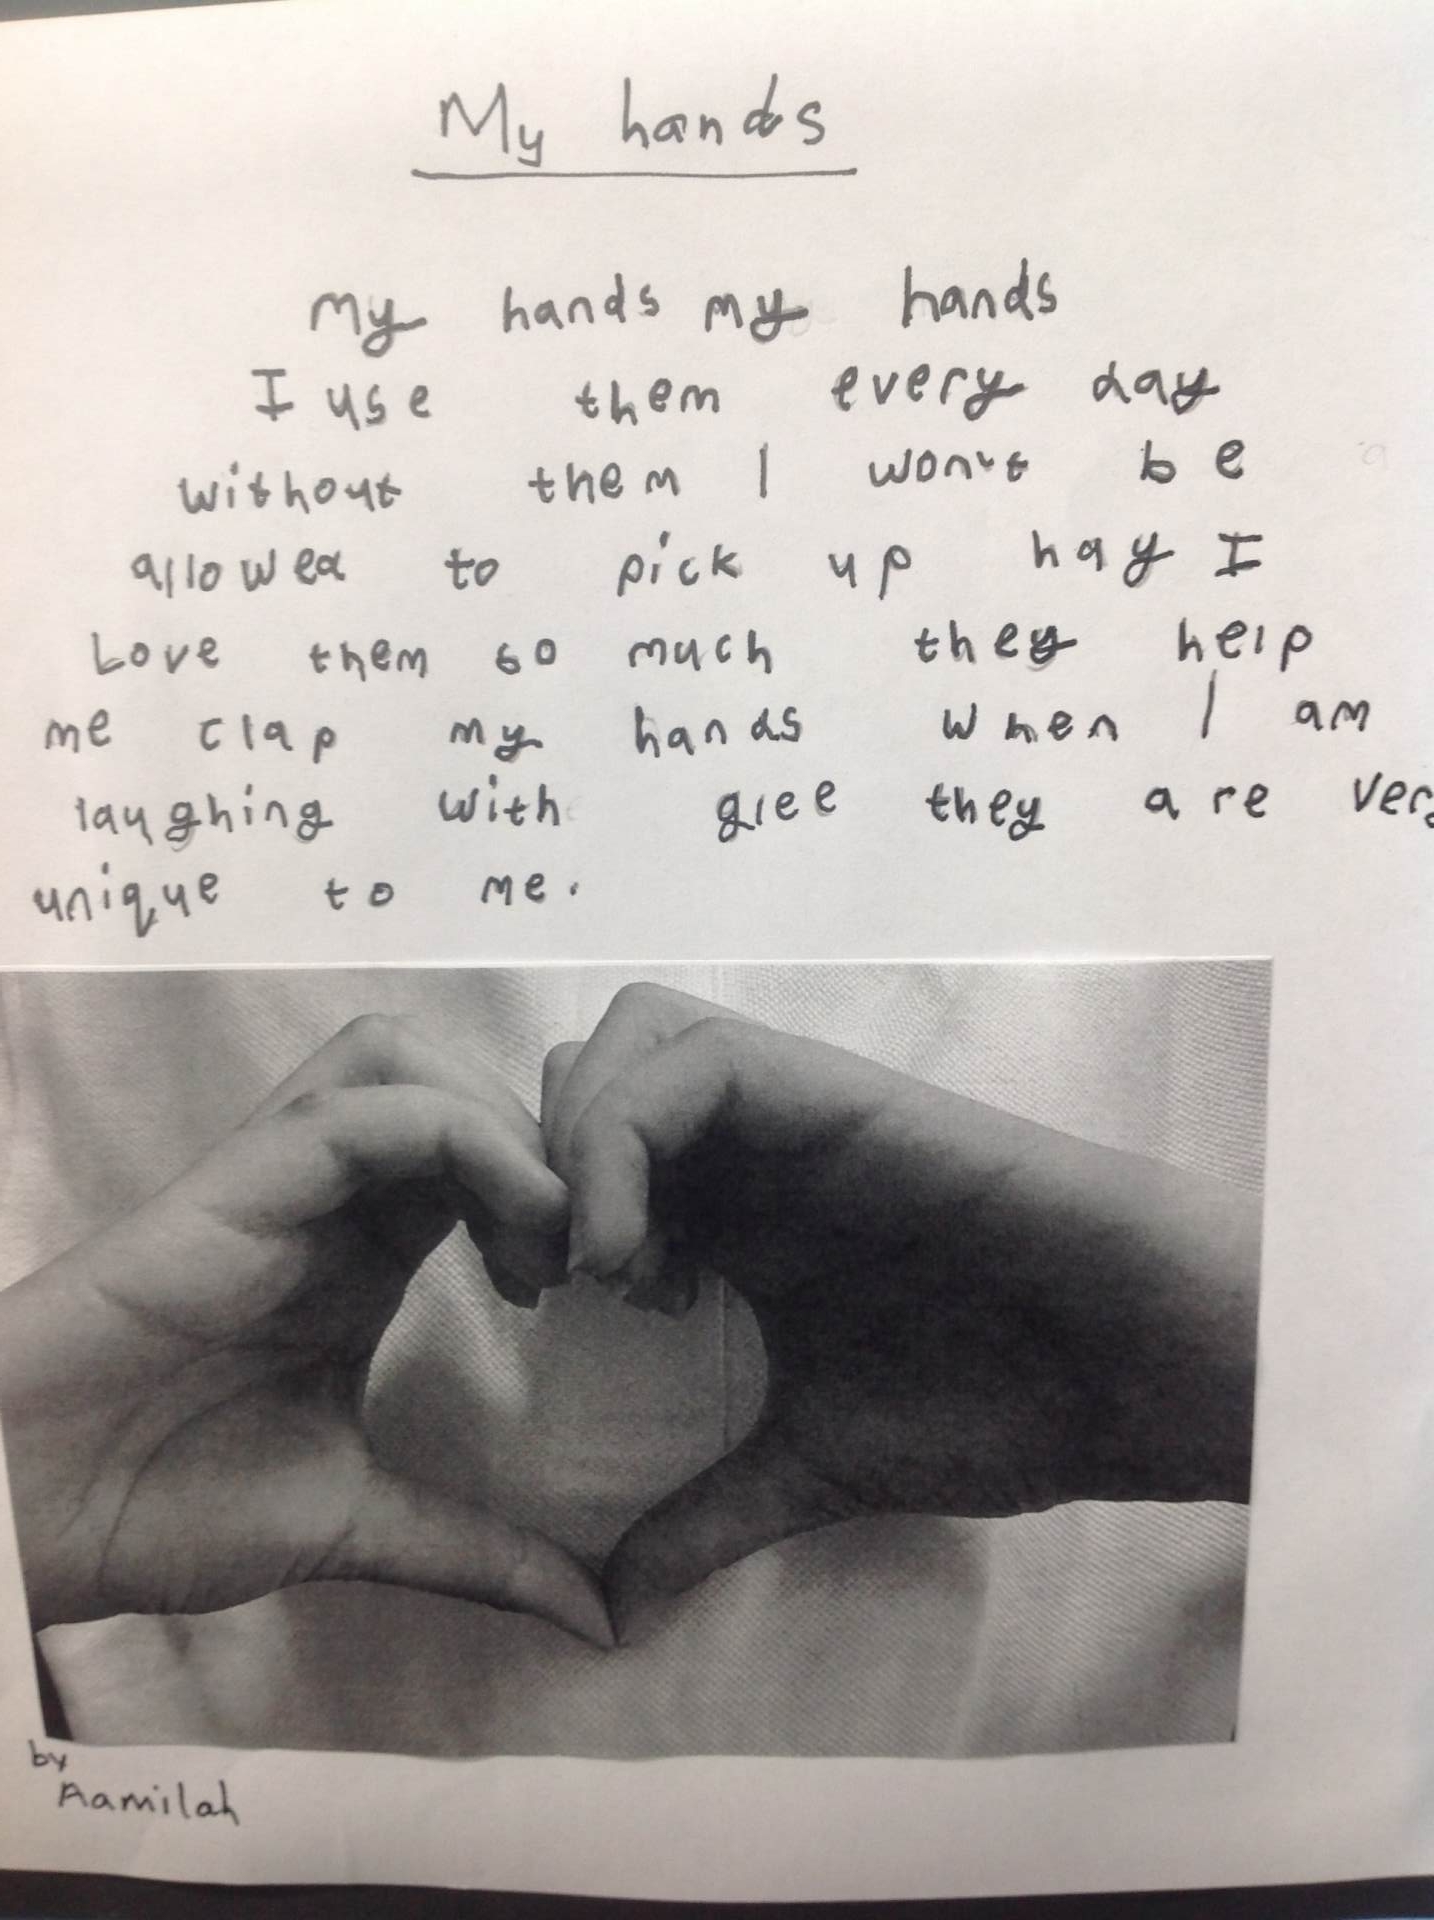 My hands
My hands my hands
I use them every day
without them I won't be
allowed to pick up hay I
Love them so much they help
me clap my hands when I am
laughing with glee they are very
unique to me.
by
Aamilah